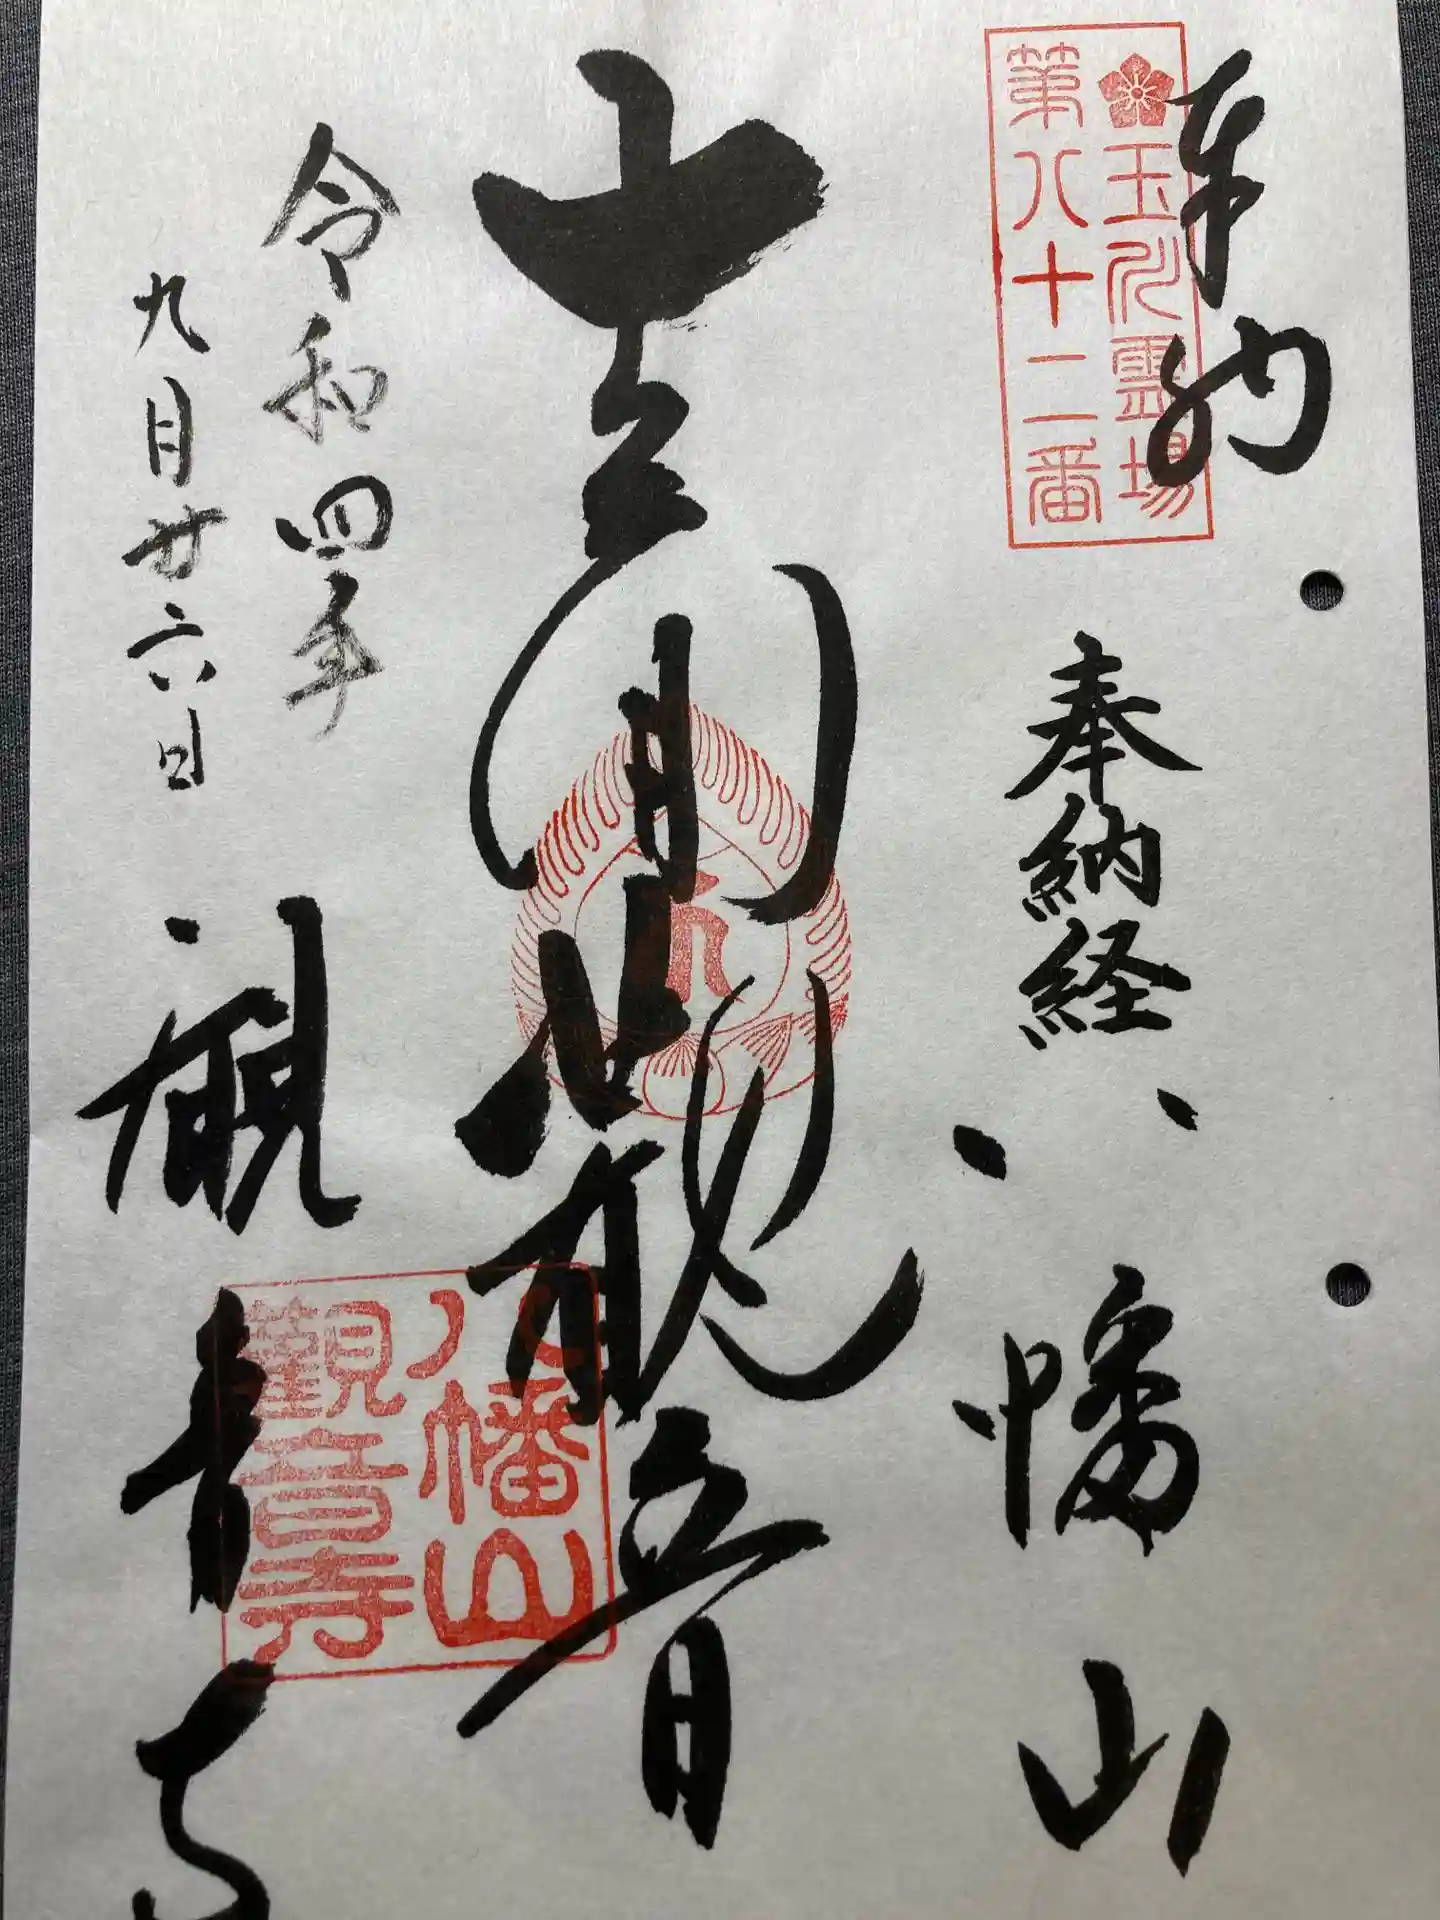 奉納
玉川霊場
第八十二番
奉納経
八幡山
聖観世音
八幡山
観音寺
令和四年
九月廿六日
観音寺